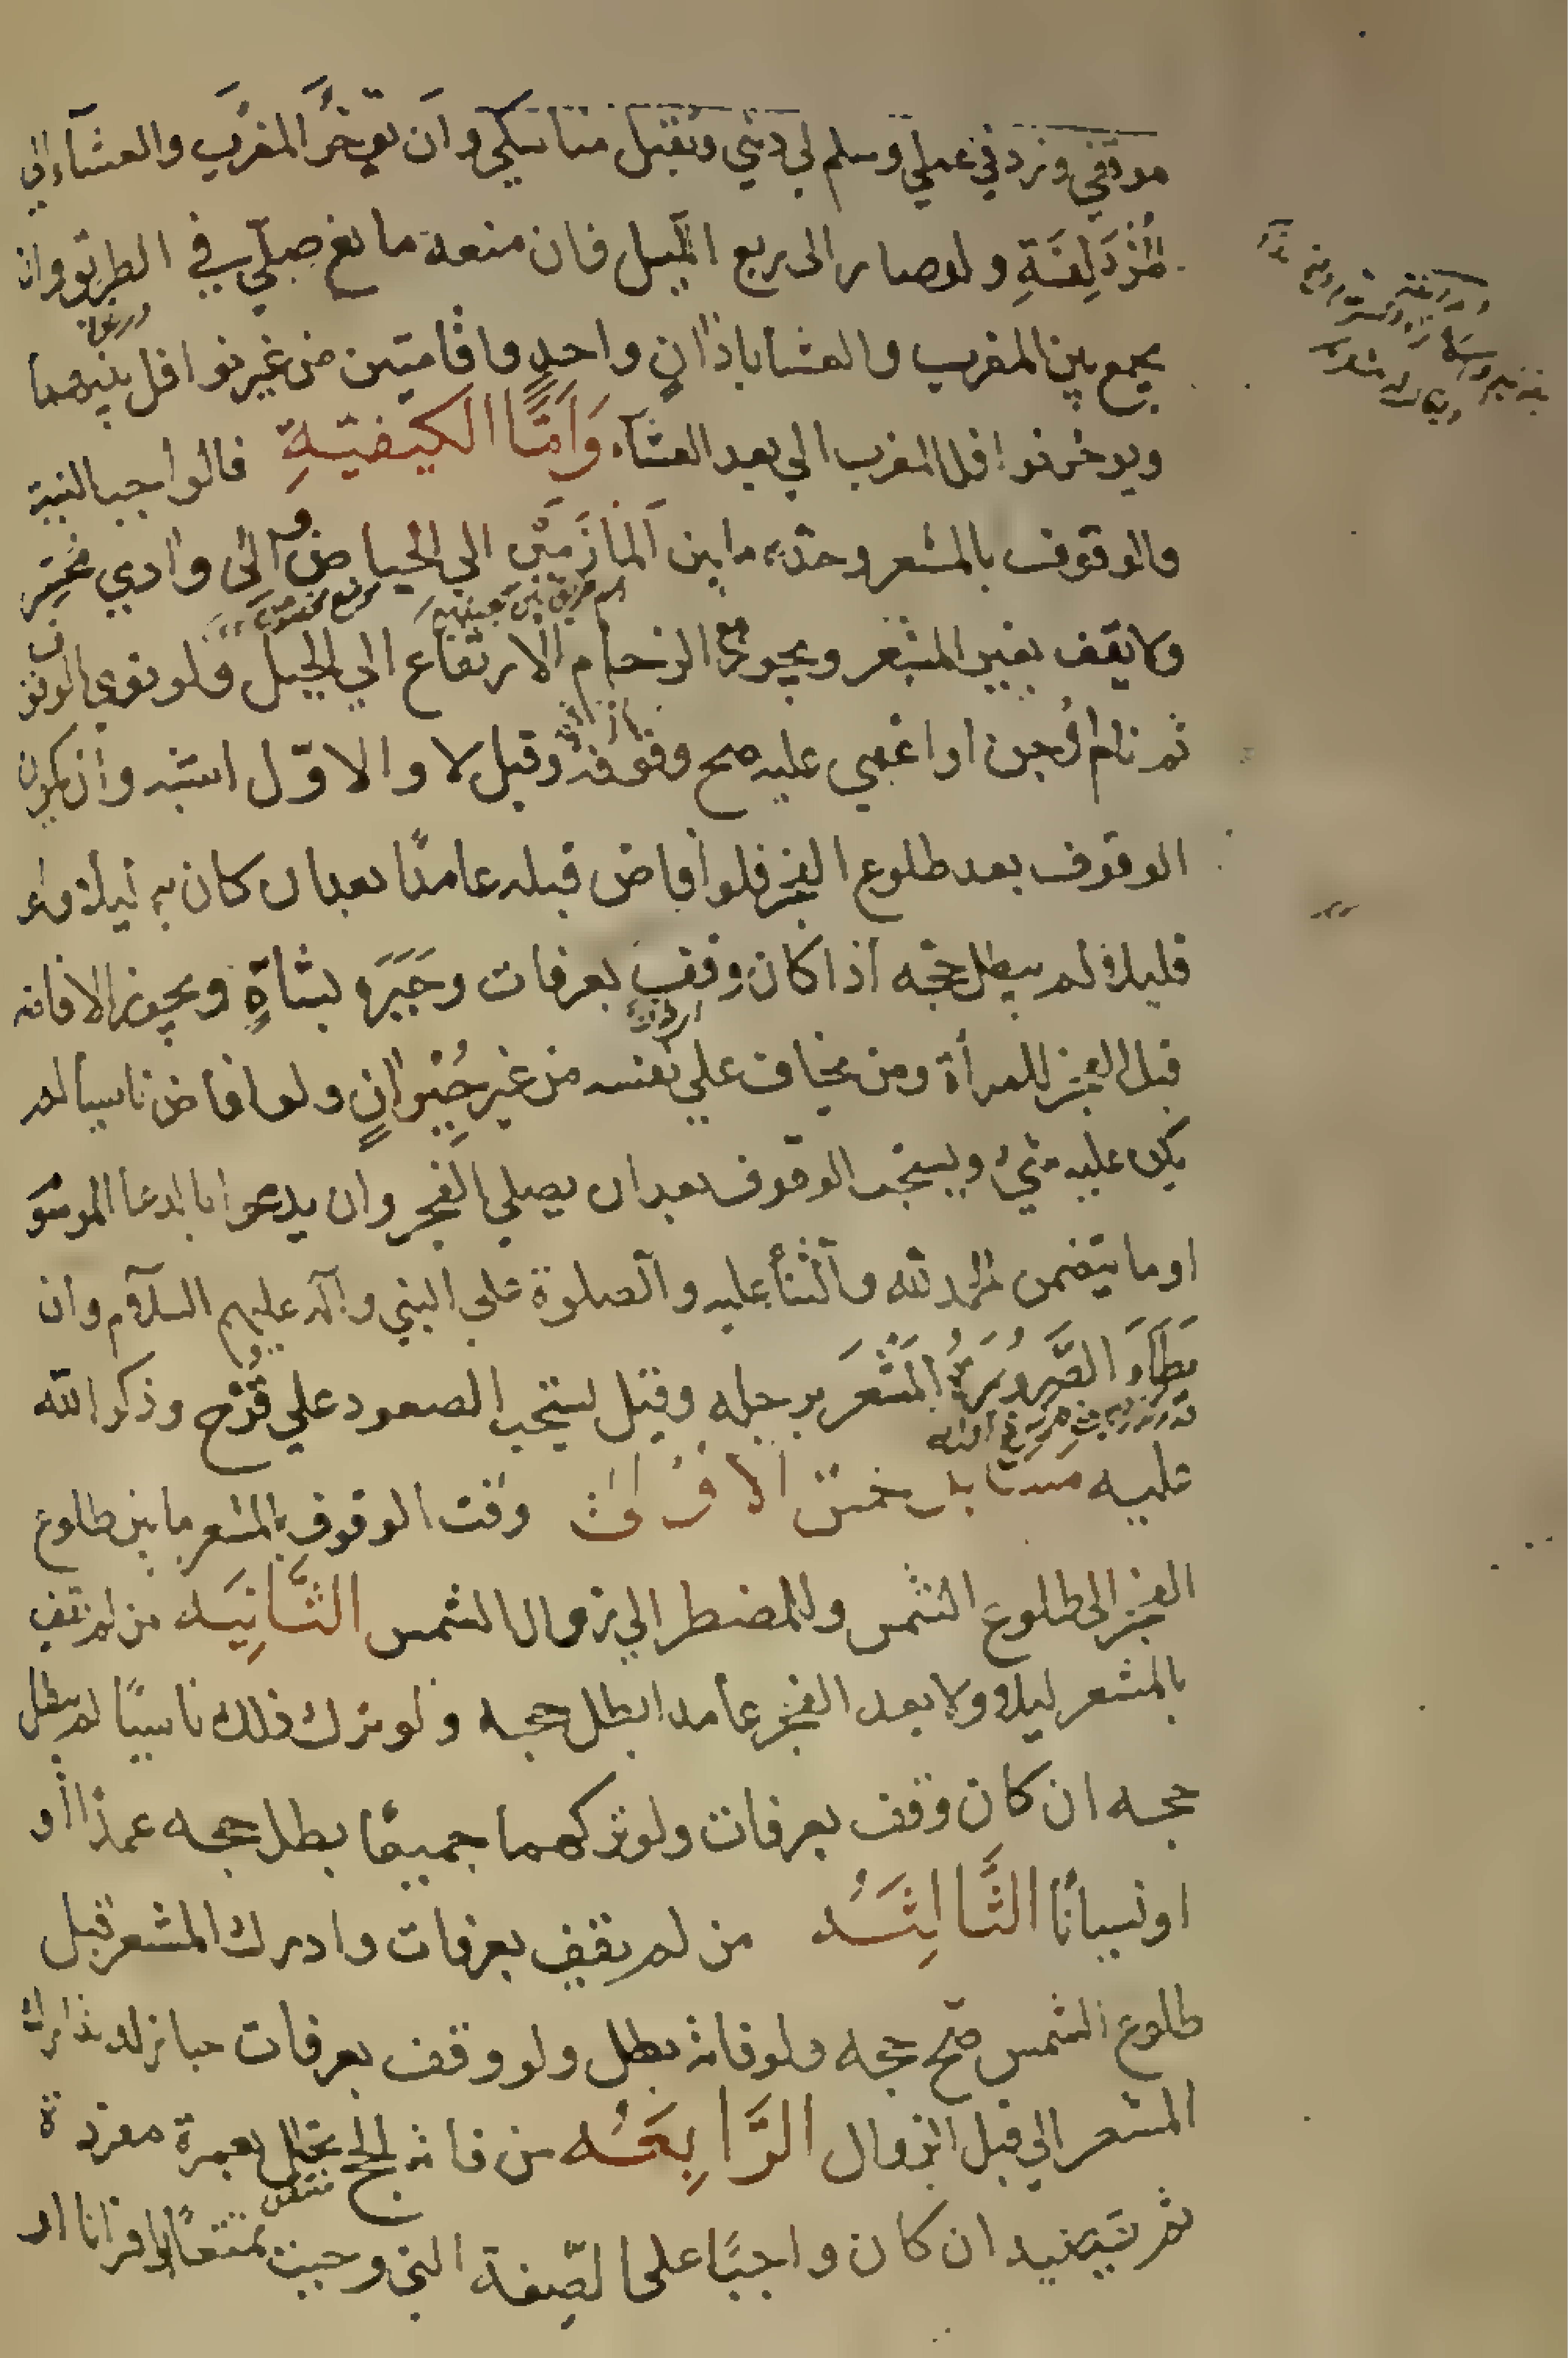 موقفي وزد في عملي وسلم لي ديني وتقبل مناسكي وان يؤخر المغرب والعشاء الى
المُزْدَلِفَةِ ولو صار الى ربع الليل فان منعه مانع صلي في الطريق وان
يجمع بين المغرب والعشا باذان واحدٍ واقامتين من غير نوافل بينهما
ويوخر نوافل المغرب الي بعد العشآء وَاَمَّا الكيفيّةِ فالواجب النية
والوقوف بالمشعر وحدّه ما بين المَأزَمَيْن الي الحياض والى وادي محسّر
ولا يقف بغير المشعر ويجوز مع الزحام الارتفاع الي الجبل ولو نوي الوقوف
ثم نام او جن او اغمي عليه صح وقوفه وقيل لا والاوّل اشبه وان يكون
الوقوف بعد طلوع الفجر فلو أفاض قبله عامدًا بعد ان كان به ليلا ولو
قليلا لم يبطل حجّه اذا كان وقف بعرفات وَجَبَرَهُ بشاةٍ ويجوز الافاضه
قبل الفجر للمرأة ومن يخاف علي نفسه من غير جُبْرانٍ ولو افاض ناسيا لم
يكن عليه شيءٌ ويستحب الوقوف بعد ان يصلي الفجر وان يدعوا بالدعا المرسوم
او ما يتضمن الحمد لله والثنأ عليه والصلوة علي النبي وآله عليهم السلآم وان
يَطَأَ الصَّرُورَةُ المَشْعَرَ برجله وقيل يستحب الصعود علي قُزَح وذكر الله
عليه مسايل خمسٌ الاولىٰ وقت الوقوف بالمشعر ما بين طلوع
الفجر الى طلوع الشمس وللمضطر الي زوال الشمس الثَّانِيَه من لم يقف
بالمشعر ليلا ولا بعد الفجر عامدا بطل حجه ولو ترك ذلك ناسيًا لم يبطل
حجه ان كان وقف بعرفات ولو تركهما جميعًا بطل حجه عمدًا او
او نسيانًا الثَّالِثَهُ من لم يقف بعرفات وادرك المشعر قبل
طلوع الشمس صحّ حجه ولو فاته بطل ولو وقف بعرفات جاز له تدارك
المشعر الي قبل الزوال الرَّابِعَهُ من فاته الحج تحلل بعمرة مفردة
ثم يقضيه ان كان واجبًا على الصِّفة التي وجبت تمتعًا او قرانا او